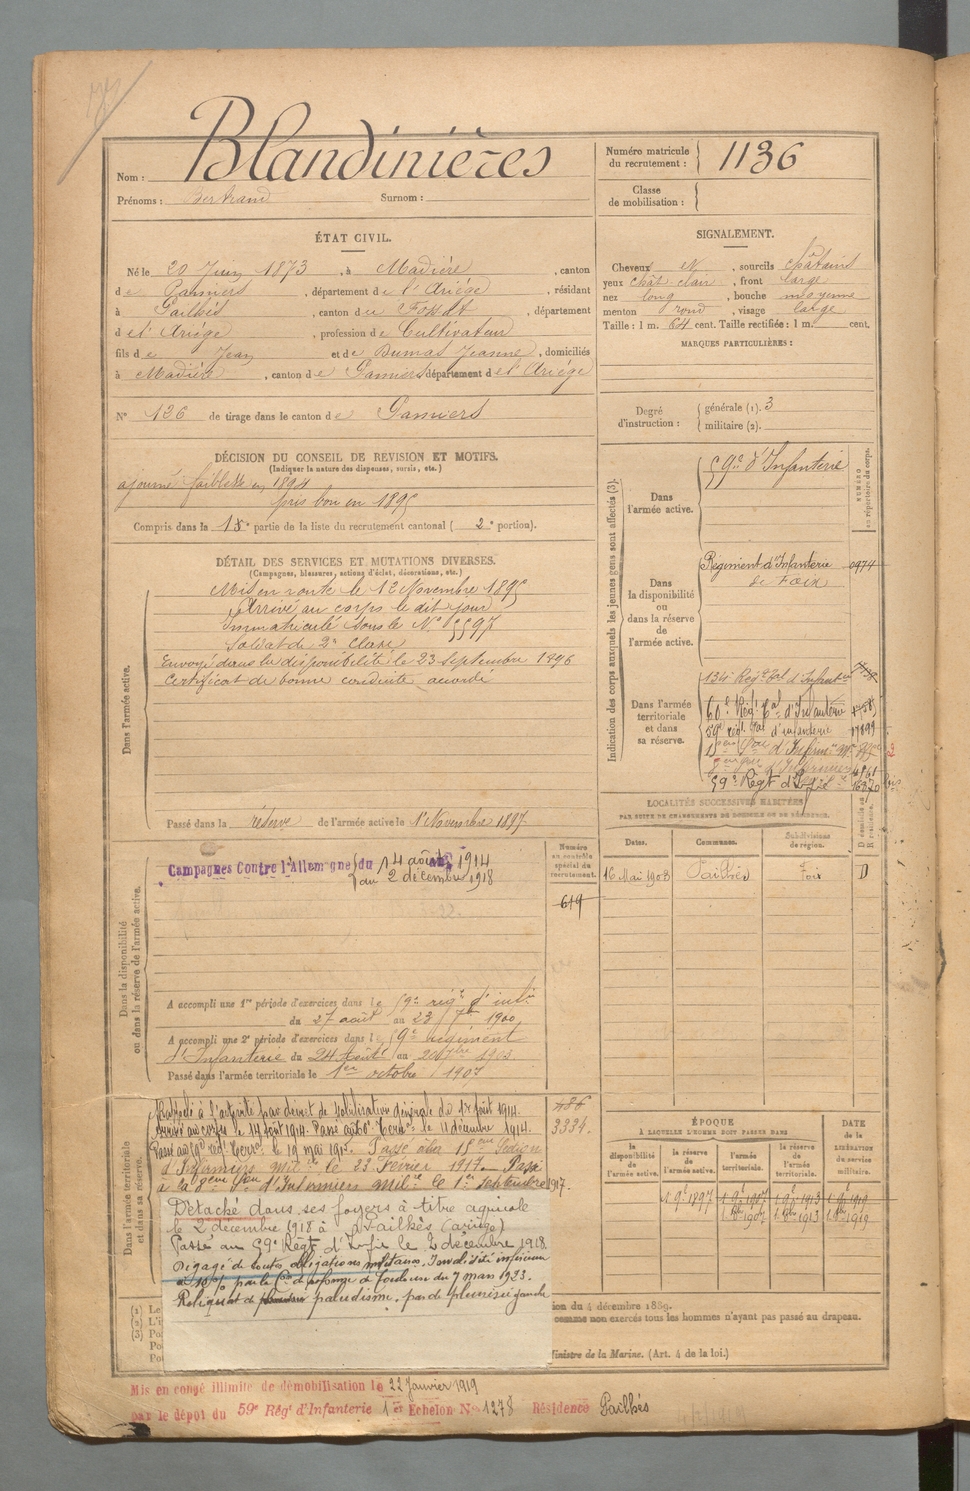 Nom : Blandinières
Prénoms : Bertrand Surnom :
Numéro matricule du recrutement : 1136
Classe de mobilisation :
ÉTAT CIVIL.
Né le 20 Juin 1873, à Madière, canton
de Pamiers, département de l'Ariége, résidant
à Pailhés, canton du Fossat, département
de l'Ariége, profession de Cultivateur
fils de Jean et de Dumas Jeanne, domiciliés
à Madière, canton de Pamiers département de l'Ariége
N° 126 de tirage dans le canton de Pamiers
SIGNALEMENT.
Cheveux et, sourcils châtains
yeux chât. clair, front large
nez long, bouche moyenne
menton rond, visage large
Taille : 1 m. 64 cent. Taille rectifiée : 1 m. cent.
MARQUES PARTICULIÈRES :
Degré d'instruction : générale (1). 3
militaire (2).
DÉCISION DU CONSEIL DE REVISION ET MOTIFS.
(Indiquer la nature des dispenses, sursis, etc.)
ajourné faiblesse en 1894
pris bon en 1895
Compris dans la 1re partie de la liste du recrutement cantonal ( 2e portion).
DÉTAIL DES SERVICES ET MUTATIONS DIVERSES.
(Campagnes, blessures, actions d'éclat, décorations, etc.)
Dans l'armée active.
Mis en route le 12 Novembre 1895
Arrivé au corps le dit jour
Immatriculé sous le N° 15597
Soldat de 2e Classe
Envoyé dans la disponibilité le 23 Septembre 1896
Certificat de bonne conduite accordé
Passé dans la réserve de l'armée active le 1er Novembre 1897.
Indication des corps auxquels les jeunes gens sont affectés (3).
NUMÉRO au répertoire du corps.
Dans l'armée active.
59e d'Infanterie
Dans la disponibilité ou dans la réserve de l'armée active.
Régiment d'Infanterie 0974
de Foix
Dans l'armée territoriale et dans sa réserve.
134e Régt Tal d'Infanterie
60e Régt Tal d'Infanterie
59e régt Tal d'infanterie 17899
59e Régt d'Infie
LOCALITÉS SUCCESSIVES HABITÉES
PAR SUITE DE CHANGEMENTS DE DOMICILE OU DE RÉSIDENCE.
Dates. Communes. Subdivisions de région. D domicile ou R résidence.
16 Mai 1908 Pailhés Foix D
Dans la disponibilité ou dans la réserve de l'armée active.
Numéro au contrôle spécial du recrutement.
619
Campagnes Contre l'Allemagne du 14 août 1914
au 2 décembre 1918
A accompli une 1re période d'exercices dans le 59e régt d'infie
du 27 août au 23 7bre 1900
A accompli une 2e période d'exercices dans le 59e régiment
d'Infanterie du 24 Août au 20 7bre 1903
Passé dans l'armée territoriale le 1er octobre 1907
Dans l'armée territoriale et dans sa réserve.
486
3334.
Rappelé à l'activité par décret de Mobilisation générale du 1er Août 1914.
Arrivé au corps le 14 août 1914. Passé au 60e Terral le 11 décembre 1914.
Passé au 59e régt Terral le 19 mai 1915. Passé à la 18eme Section
d'Infirmiers milre le 23 Février 1917. Passé
à la 8eme Son d'Infirmiers milre le 1er Septembre 1917.
Détaché dans ses foyers à titre agricole
le 2 décembre 1918 à Pailhès (ariège)
Passé au 59e Régt d'Infie le 2 décembre 1918
Dégagé de toutes obligations militaires. Invalidité inférieure
à 10% par la Con de réforme de Toulouse du 7 mars 1923.
Reliquat de paludisme. pas de pleurésie gauche
ÉPOQUE
À LAQUELLE L'HOMME DOIT PASSER DANS
la disponibilité de l'armée active. la réserve de l'armée active. l'armée territoriale. la réserve de l'armée territoriale.
DATE de la LIBÉRATION du service militaire.
1 9bre 1897 1 9bre 1907 1 9bre 1913 1 9bre 1919
1 8bre 1907 1 8bre 1913 1 8bre 1919
(1) Le
(2) L'i
(3) Po
Po
Po
ion du 4 décembre 1889.
comme non exercés tous les hommes n'ayant pas passé au drapeau.
Ministre de la Marine. (Art. 4 de la loi.)
Mis en congé illimité de démobilisation le 22 Janvier 1919
par le dépôt du 59e Régt d'Infanterie 1er Echelon N° 1278 Résidence Pailhés